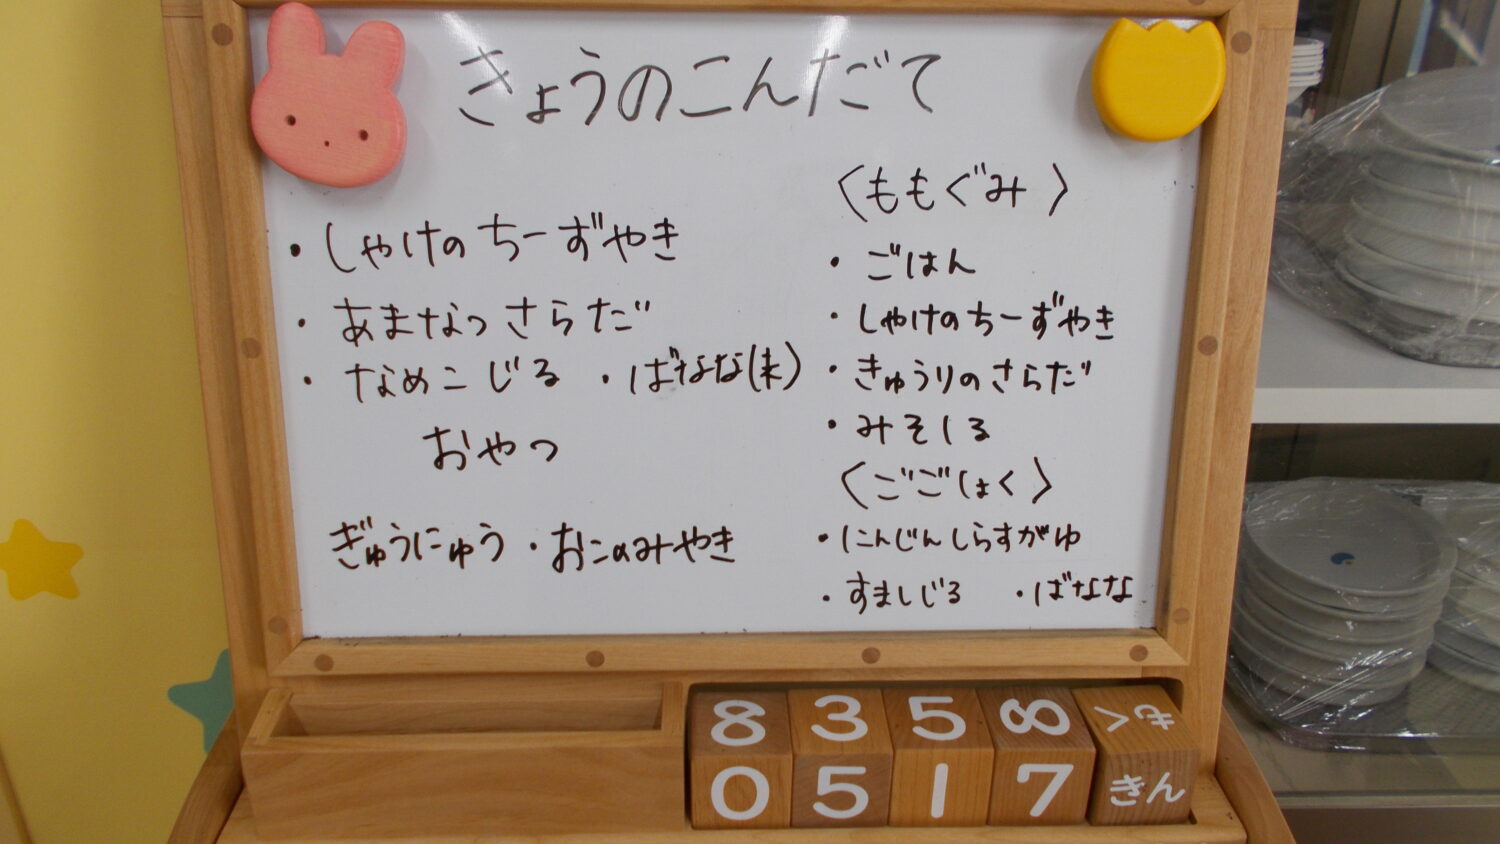 きょうのこんだて
・しゃけのちーずやき
・あまなっさらだ
・なめこじる ・ばなな(末)
おやつ
ぎゅうにゅう・おこのみやき
〈ももぐみ〉
・ごはん
・しゃけのちーずやき
・きゅうりのさらだ
・みそしる
〈ごごしょく〉
・にんじんしらすがゆ
・すましじる ・ばなな
8 3 5 8 もく
0 5 1 7 きん